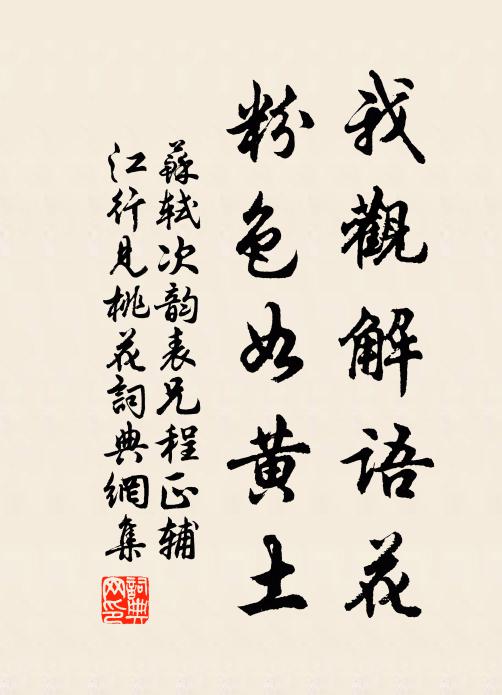 我觀解語花
粉色如黄土
蘇轼次韵表兄程正辅
江行見桃花詞典網集
詞典
网印